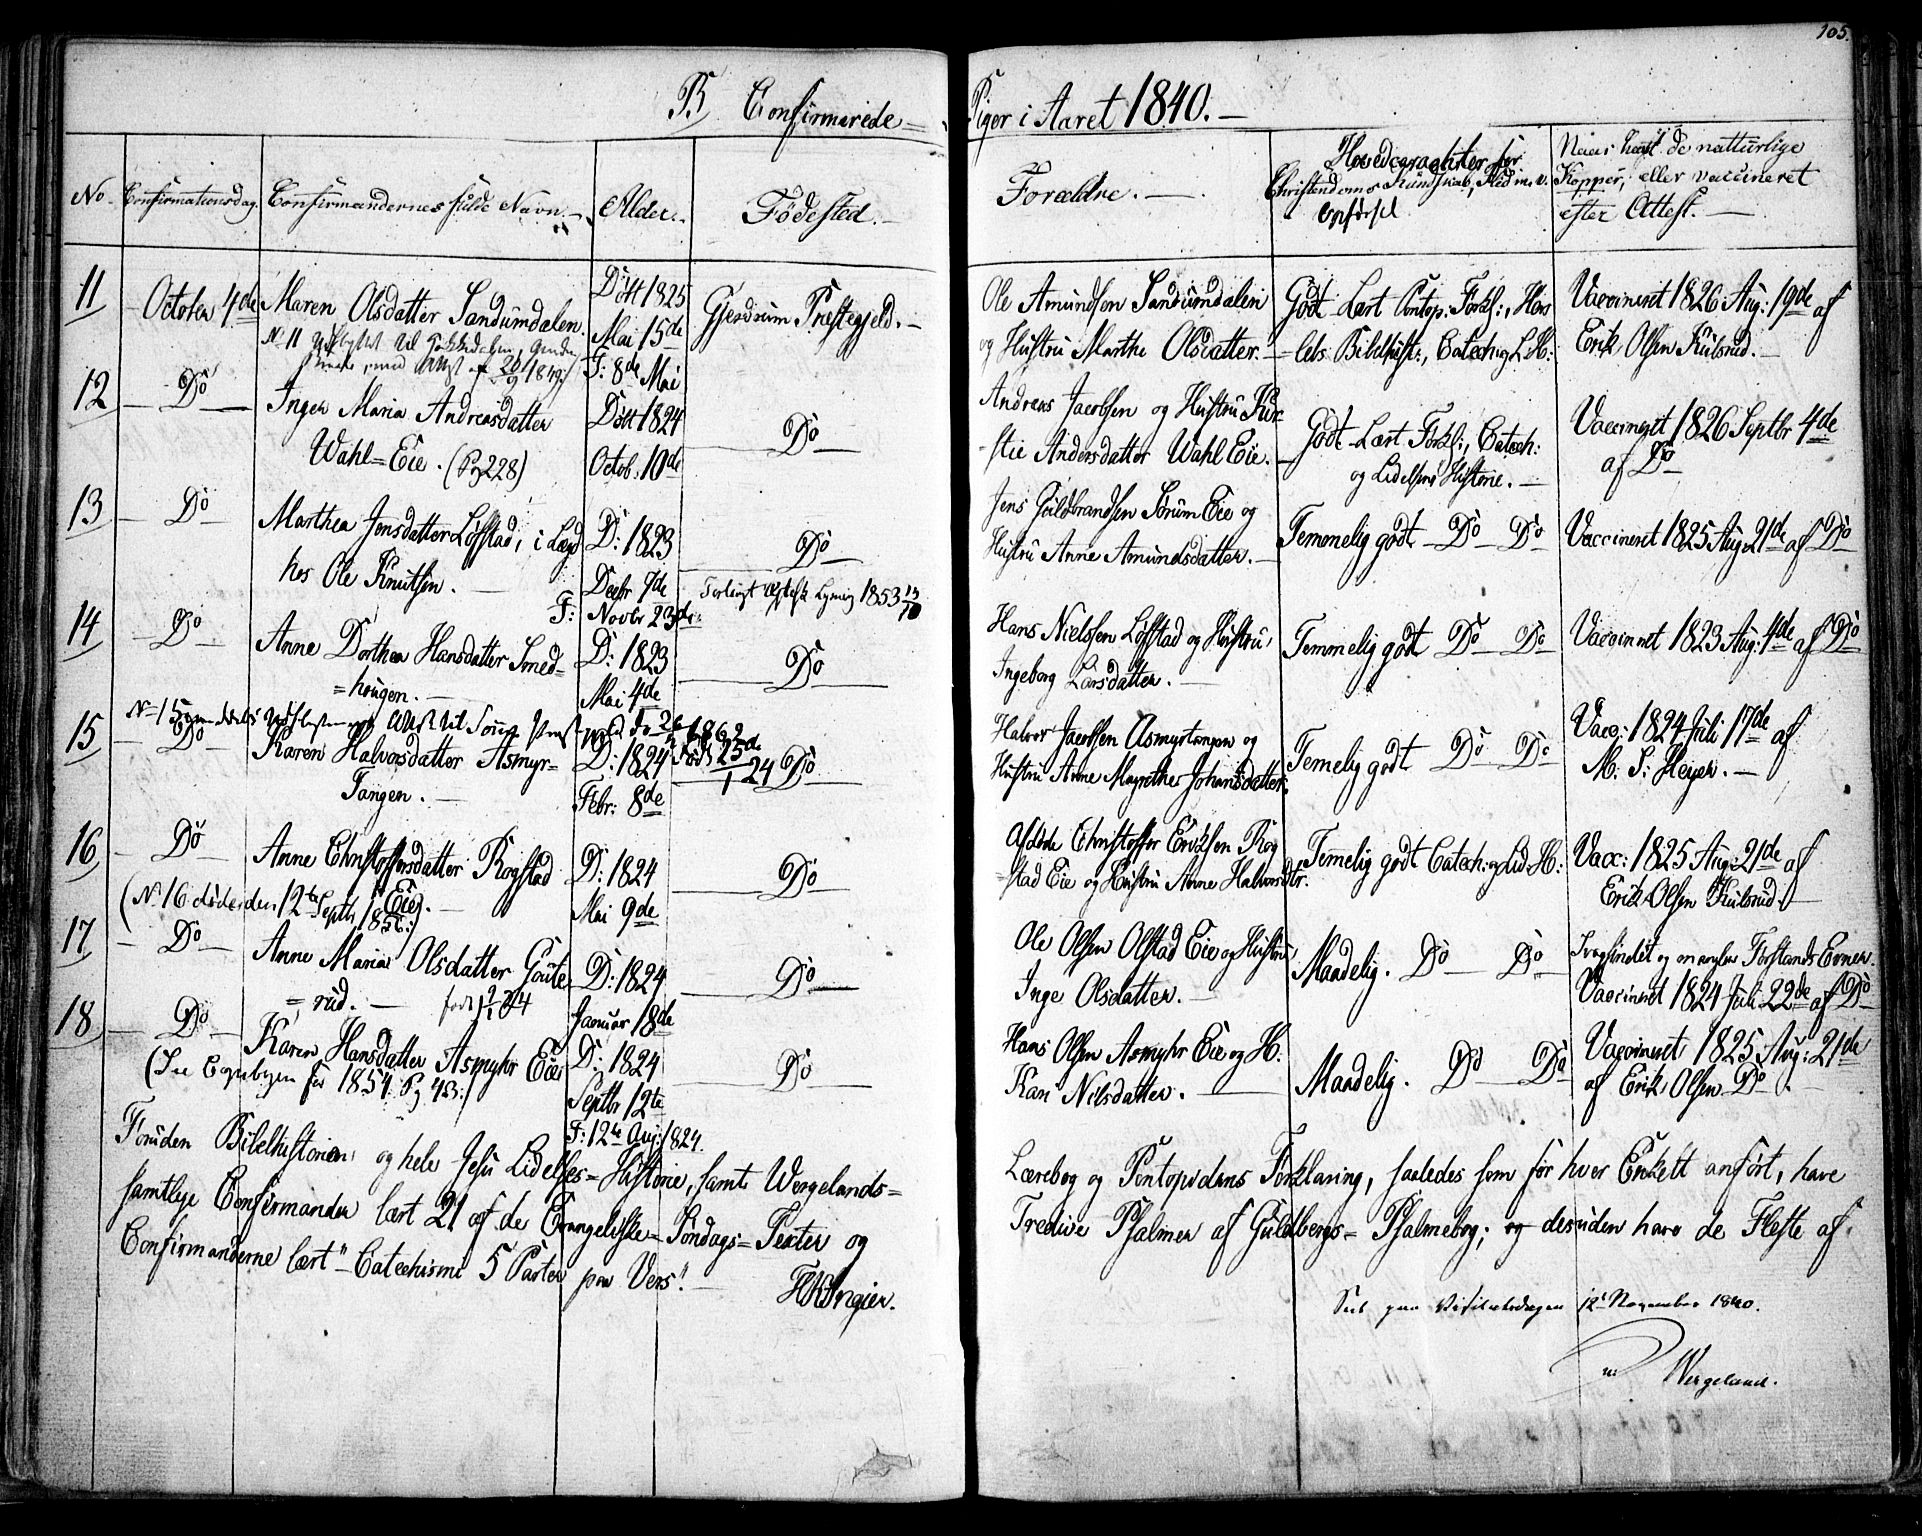 105.
B, Confirmerede Piger i Aaret 1840.
No
Confirmationsdag.
Confirmandernes fulde Navn.
Alder.
Fødested.
Forældre.
Hovedcaracter for
Christendoms Kundskab, Flid m. v.
Opførsel
Naar havt de naturlige
Kopper, eller vaccineret
efter Attest.
11
October 4de
Maren Olsdatter Sandumdalen.
Døbt 1825
Mai 15de
F: 8de Mai
Gjerdrum Præstegjeld.
Ole Amundsen Sandumdalen
og Hustru Marthe Olsdatter.
Godt Lært Pontop: Forkl:, Hers
lebs Bibelhist:, Catech: og L. H:
Vaccineret 1826 Aug: 19de af
Erik Olsen Kulsrud.
No 11 udflyttet til
med Attest af 20/9 1849
12
Do
Inger Maria Andreasdatter
Wahl=Eie. (Pg 228)
Døbt 1824
Octob: 10de
Do
Andreas Jacobsen og Hustru Kir
stie Andersdatter Wahl Eie.
Godt Lært Forkl:, Catech:
og Lidelsens Historie.
Vaccineret 1826 Septbr 4de
af Do
13
Do
Marthea Jensdatter Løfstad, i Lægd
hos Ole Knutsen.
D: 1823
Decbr 7de
F: Novbr 23de
Do
Jens Guldbrandsen Sørum Eie og
Hustru Anne Amundsdatter.
Temmelig godt Do Do
Vaccineret 1825 Aug: 21de af Do
1853 13/10
14
Do
Anne Dorthea Hansdatter Smed=
=hougen.
D: 1823
Mai 4de
Do
Hans Nielsen Løfstad og Hustru
Ingeborg Larsdatter.
Temmelig godt Do Do
Vaccinnet 1823 Aug: 4de af Do
No 15
Attest til
1862
15
Do
Karen Halvorsdatter Asmyr=
Tangen.
D: 1824
Febr: 8de
Født 25de
1 24
Do
Halvor Jacobsen Asmyrtangen og
Hustru Anne Magrethe Johansdatter.
Temelig godt Do Do
Vacc: 1824 Juli 17de af
M: S: Heyer.
16
Do
Anne Christoffersdatter Rogstad
Eie.
D: 1824
Mai 9de
Do
Afdøde Christoffer Eriksen Rog
=stad Eie og Hustru Anne Halvorsdtr.
Temelig godt Catech: og Lid H:
Vacc: 1825 Aug: 21de af
Erik Olsen Kulsrud.
(No 16 døde den 12te Septbr
17
Do
Anne Maria Olsdatter Goute
=rud.
D: 1824
Januar 18de
Do
Ole Olsen Olstad Eie og Hustru
Inge Olsdatter.
Maadelig. Do Do
Tvagsindet og mangler Forstands Evner.
Vaccinnet 1824 Juli 22de af Do
18
Do
Karen Hansdatter Asmyhr Eie
(See Copiebogen for 1854 Pg 43:)
D: 1824
Septbr 12te
F: 12te Aug: 1824.
Do
Hans Olsen Asmyhr Eie og H:
Kari Nilsdatter.
Maadelig. Do Do
Vaccineret 1825 Aug: 21de
af Erik Olsen Do.
Foruden Bibelhistorien og hele Jesu Lidelses=Historie, samt Wergelands= Lærebog og Pontopidans Forklaring, saaledes som for hver Enkelt anført, have
samtlige Confirmander lært 21 af de Evangeliske=Søndags=Texter og Tredive Psalmer af Guldbergs=Psalmebog; og desuden have de Fleste af
Confirmanderne lært "Catechismi 5 Parter paa Vers".
Seet paa Visitatsdagen 12te November 1840.
Wergeland.